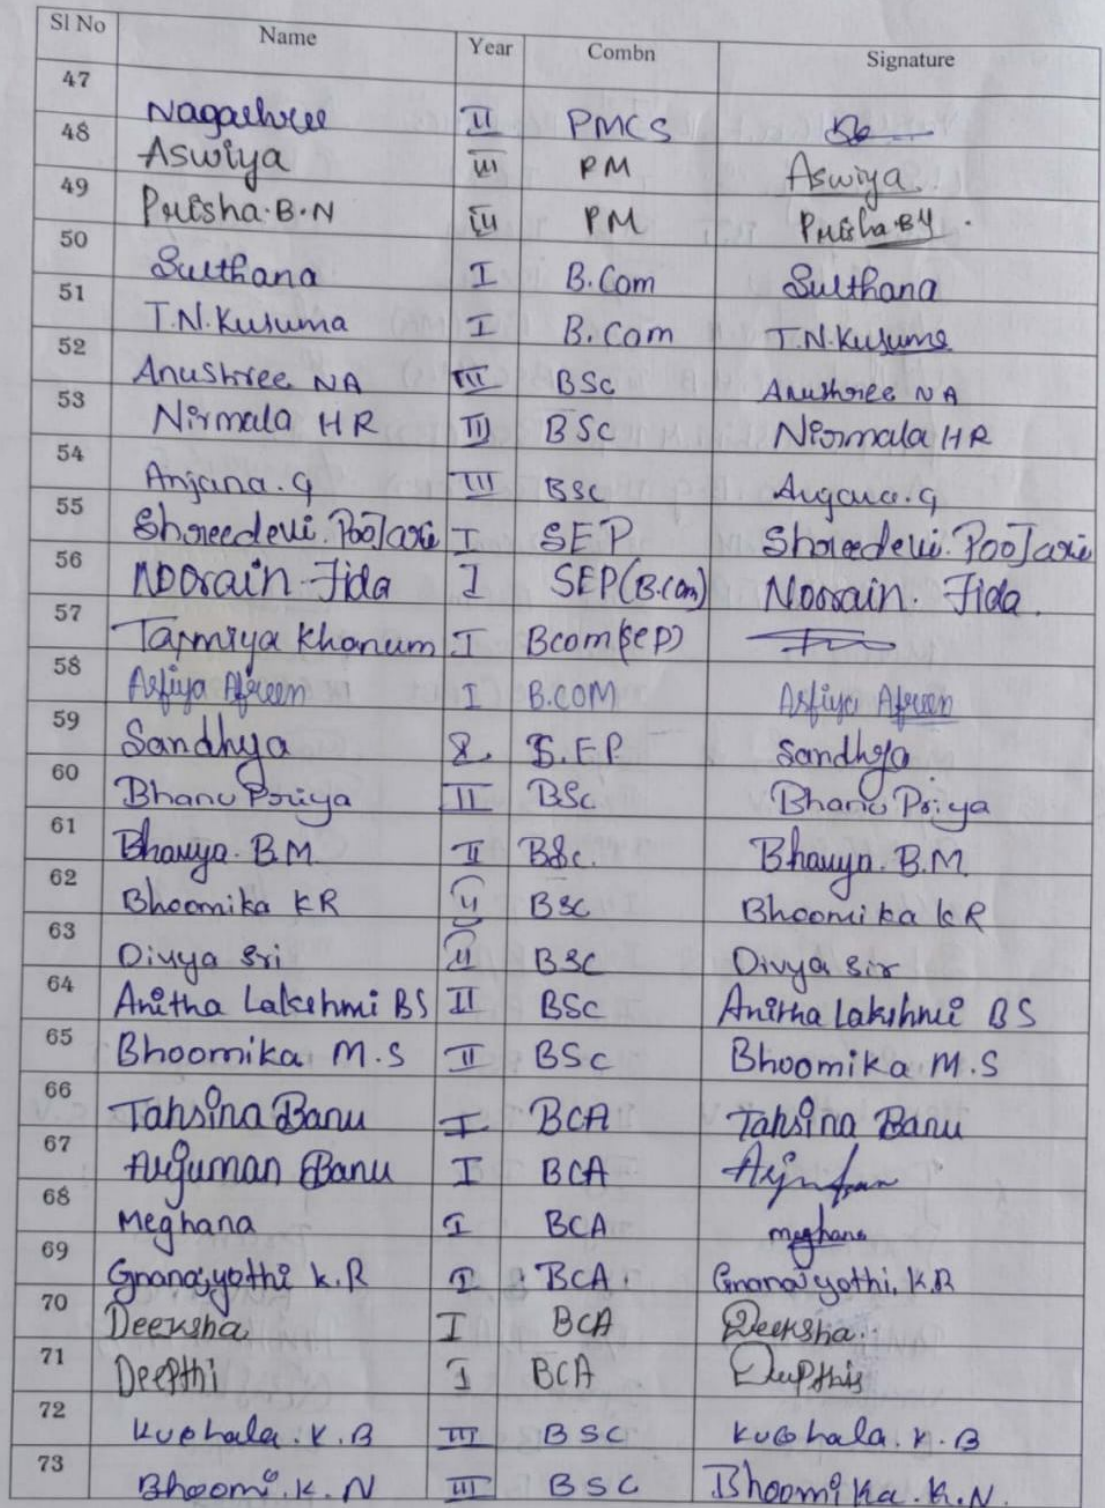 Sl No Name Year Combn Signature
47 Nagashree II PMCS
48 Aswiya III PM Aswiya
49 Prisha.B.N III PM Prisha BN.
50 Sulthana I B.Com Sulthana
51 T.N.Kusuma I B.Com T.N.Kusuma
52 Anushree NA III BSc Anushree NA
53 Nirmala HR III BSc Nirmala HR
54 Anjana.G III BSc Anjana.G
55 Shreedevi.PooJari I SEP Shreedevi.PooJari
56 Noorain Fida I SEP(B.Com) Noorain. Fida.
57 Tasmiya Khanum I Bcom(sep)
58 Asfiya Afreen I B.COM Asfiya Afreen
59 Sandhya S.EP Sandhya
60 Bhanu Priya II BSc Bhanu Priya
61 Bhavya.B.M II BSc. Bhavya.B.M.
62 Bhoomika KR II BSC Bhoomika KR
63 Divya Sri II BSC Divya Sir
64 Anitha Lakshmi BS II BSC Anitha Lakshmi BS
65 Bhoomika M.S II BSc Bhoomika M.S
66 Tahsina Banu I BCA Tahsina Banu
67 Anjuman Banu I BCA
68 Meghana I BCA meghana
69 Gnanajyothi K.R I BCA. Gnanajyothi.K.R
70 Deeksha I BCA Deeksha..
71 Deepthi I BCA Deepthi
72 Kushala.K.B III BSC Kushala.K.B
73 Bhoomi.K.N III BSC Bhoomika.K.N.